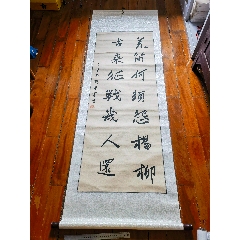 羌笛何须怨楊柳
古来征戰幾人還